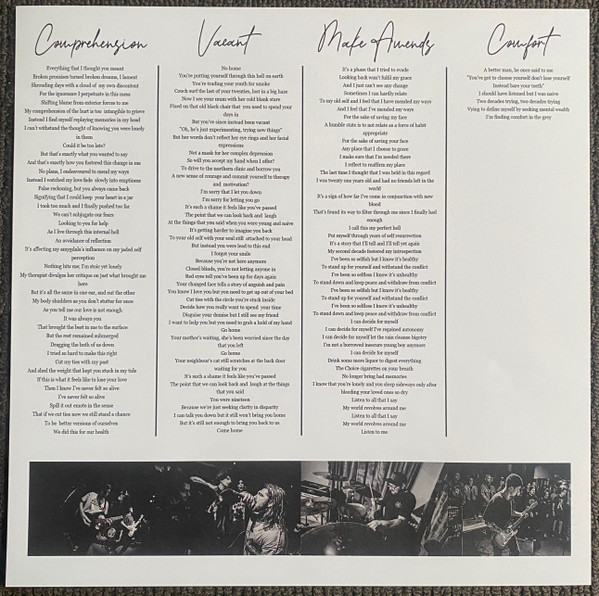 Comprehension
Everything that I thought you meant
Broken promises turned broken dreams, I lament
Shrouding days with a cloud of my own discontent
For the ignorance I perpetuate in this mess
Shifting blame from exterior forces to me
My comprehension of the hurt is too intangible to grieve
Instead I find myself replaying memories in my head
I can't withstand the thought of knowing you were lonely
in them
Could it be too late?
But that's exactly what you wanted to say
And that's exactly how you fostered this change in me
No plans, I endeavoured to mend my ways
Instead I watched my love fade slowly into emptiness
False reckoning, but you always came back
Signifying that I could keep your heart in a jar
I took too much and I finally pushed too far
We can't subjugate our fears
Looking to you for help
As I live through this internal hell
An avoidance of reflection
It's affecting my amygdala's influence on my jaded self
perception
Nothing bits me, I'm stoic yet lonely
My therapist divulges her critique on just what brought me
here
But it's all the same in one ear, and out the other
My body shudders as you don't stutter for once
As you tell me our love is not enough
It was always you
That brought the best in me to the surface
But the rest remained submerged
Dragging the both of us down
I tried so hard to make this right
Cut my ties with my past
And shed the weight that kept you stuck in my tide
If this is what it feels like to lose your love
Then I know I've never felt so alive
I've never felt so alive
Spill it out emote in the sense
That if we cut ties now we still stand a chance
To be better versions of ourselves
We did this for our health
Vacant
No home
You're putting yourself through this hell on earth
You're trading your youth for smoke
Couch surf the last of your twenties, lost in a big haze
Now I see your mum with her cold blank stare
Fixed on that old black chair that you used to spend your
days in
But you've since instead been vacant
"Oh, he's just experimenting, trying new things"
But her words don't reflect her eye rings and her facial
expressions
Not a mask for her complex depression
So will you accept my hand when I offer?
To drive to the northern clinic and borrow you
A new sense of courage and commit yourself to therapy
and motivation?
I'm sorry that I let you down
I'm sorry for letting you go
It's such a shame it feels like you've passed
The point that we can look back and laugh
At the things that you said when you were young and naive
It's getting harder to imagine you back
To your old self with your soul still attached to your head
But instead you were lead to this end
I forgot your smile
Because you're not here anymore
Closed blinds, you're not letting anyone in
Red eyes tell you've been up for days again
Your changed face tells a story of anguish and pain
You know I love you but you need to get up out of your bed
Cut ties with the circle you're stuck inside
Decide how you really want to spend your time
Disguise your demise but I still see my friend
I want to help you but you need to grab a hold of my hand
Go home
Your mother's waiting, she's been worried since the day
that you left
Go home
Your neighbour's cat still scratches at the back door
waiting for you
It's such a shame it feels like you've passed
The point that we can look back and laugh at the things
that you said
You were nineteen
Because we're just seeking clarity in disparity
I can talk you down but it still won't bring you home
But it's still not enough to bring you back to us
Come home
Make Amends
It's a phase that I tried to evade
Looking back won't fulfil my grace
And I just can't see any change
Sometimes I can hardly relate
To my old self and I feel that I have mended my ways
And I feel that I've mended my ways
For the sake of saving my face
A humble state is to not relate as a force of habit
appropriate
For the sake of saving your face
Any place that I choose to grace
I make sure that I'm needed there
I reflect to reaffirm my place
The last time I thought that I was held in this regard
I was twenty one years old and had no friends left in the
world
It's a sign of how far I've come in conjunction with new
blood
That's found its way to filter through me since I finally had
enough
I call this my perfect hell
Put myself through years of self resurrection
It's a story that I'll tell and I'll tell yet again
My second decade fostered my introspection
I've been so selfish but I know it's healthy
To stand up for yourself and withstand the conflict
I've been so selfless I know it's unhealthy
To stand down and keep peace and withdraw from conflict
I've been so selfish but I know it's healthy
To stand up for yourself and withstand the conflict
I've been so selfless I know it's unhealthy
To stand down and keep peace and withdraw from conflict
I can decide for myself
I can decide for myself I've regained autonomy
I can decide for myself let the rain cleanse bigotry
I'm not a borrowed insecure young boy anymore
I can decide for myself
Drink some more liquor to digest everything
The Choice cigarettes on your breath
No longer bring bad memories
I know that you're lonely and you sleep sideways only after
bleeding your loved ones so dry
Listen to all that I say
My world revolves around me
Listen to all that I say
My world revolves around me
Listen to me
Comfort
A better man, he once said to me
"You've got to choose yourself don't lose yourself
Instead bare your teeth"
I should have listened but I was naive
Two decades trying, two decades trying
Vying to define myself by seeking mental wealth
I'm finding comfort in the grey